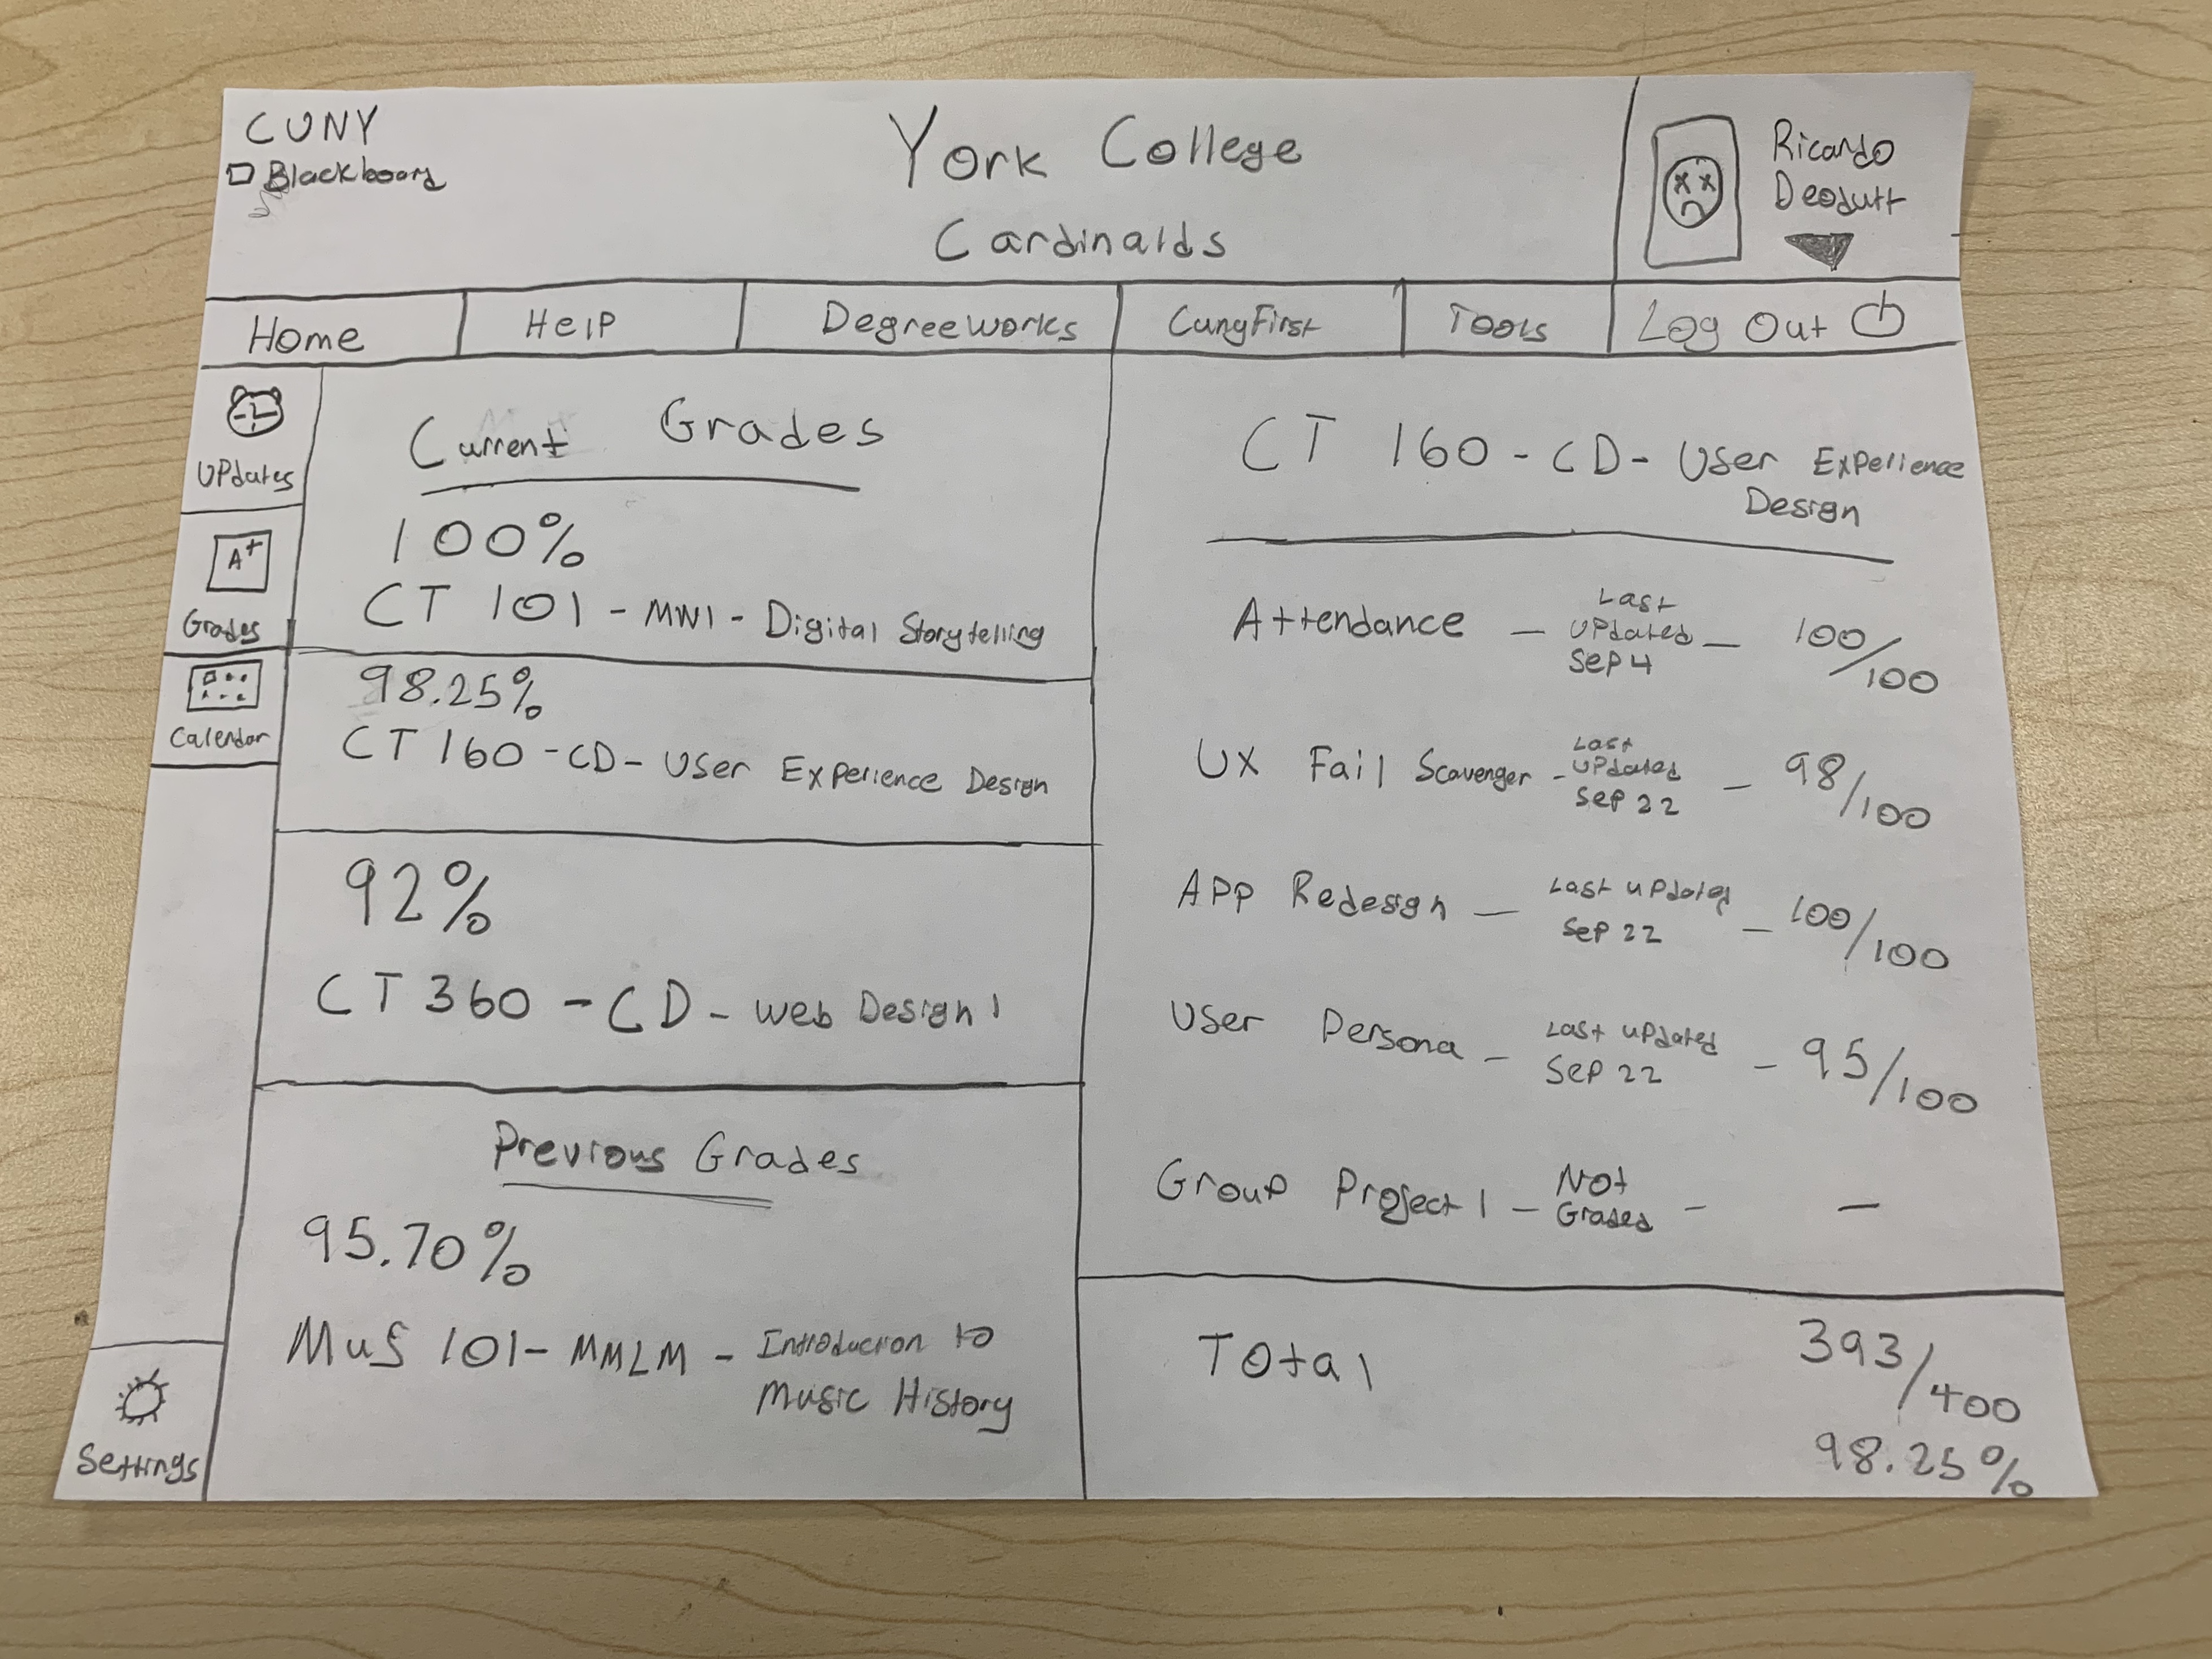 CUNY
Blackboard
York College
Cardinalds
Ricardo
Deodutt
Home
Help
DegreeWorks
CunyFirst
Tools
Log Out
Updates
A+
Grades
Calendar
Settings
Current Grades
100%
CT 101 - MW1 - Digital Storytelling
98.25%
CT 160 - CD - User Experience Design
92%
CT 360 - CD - Web Design 1
Previous Grades
95.70%
Mus 101 - MMLM - Introduction to
Music History
CT 160 - CD - User Experience
Design
Attendance - Last Updated Sep 4 - 100/100
UX Fail Scavenger - Last Updated Sep 22 - 98/100
App Redesign - Last updated Sep 22 - 100/100
User Persona - Last updated Sep 22 - 95/100
Group Project 1 - Not Graded - -
Total 393/400
98.25%